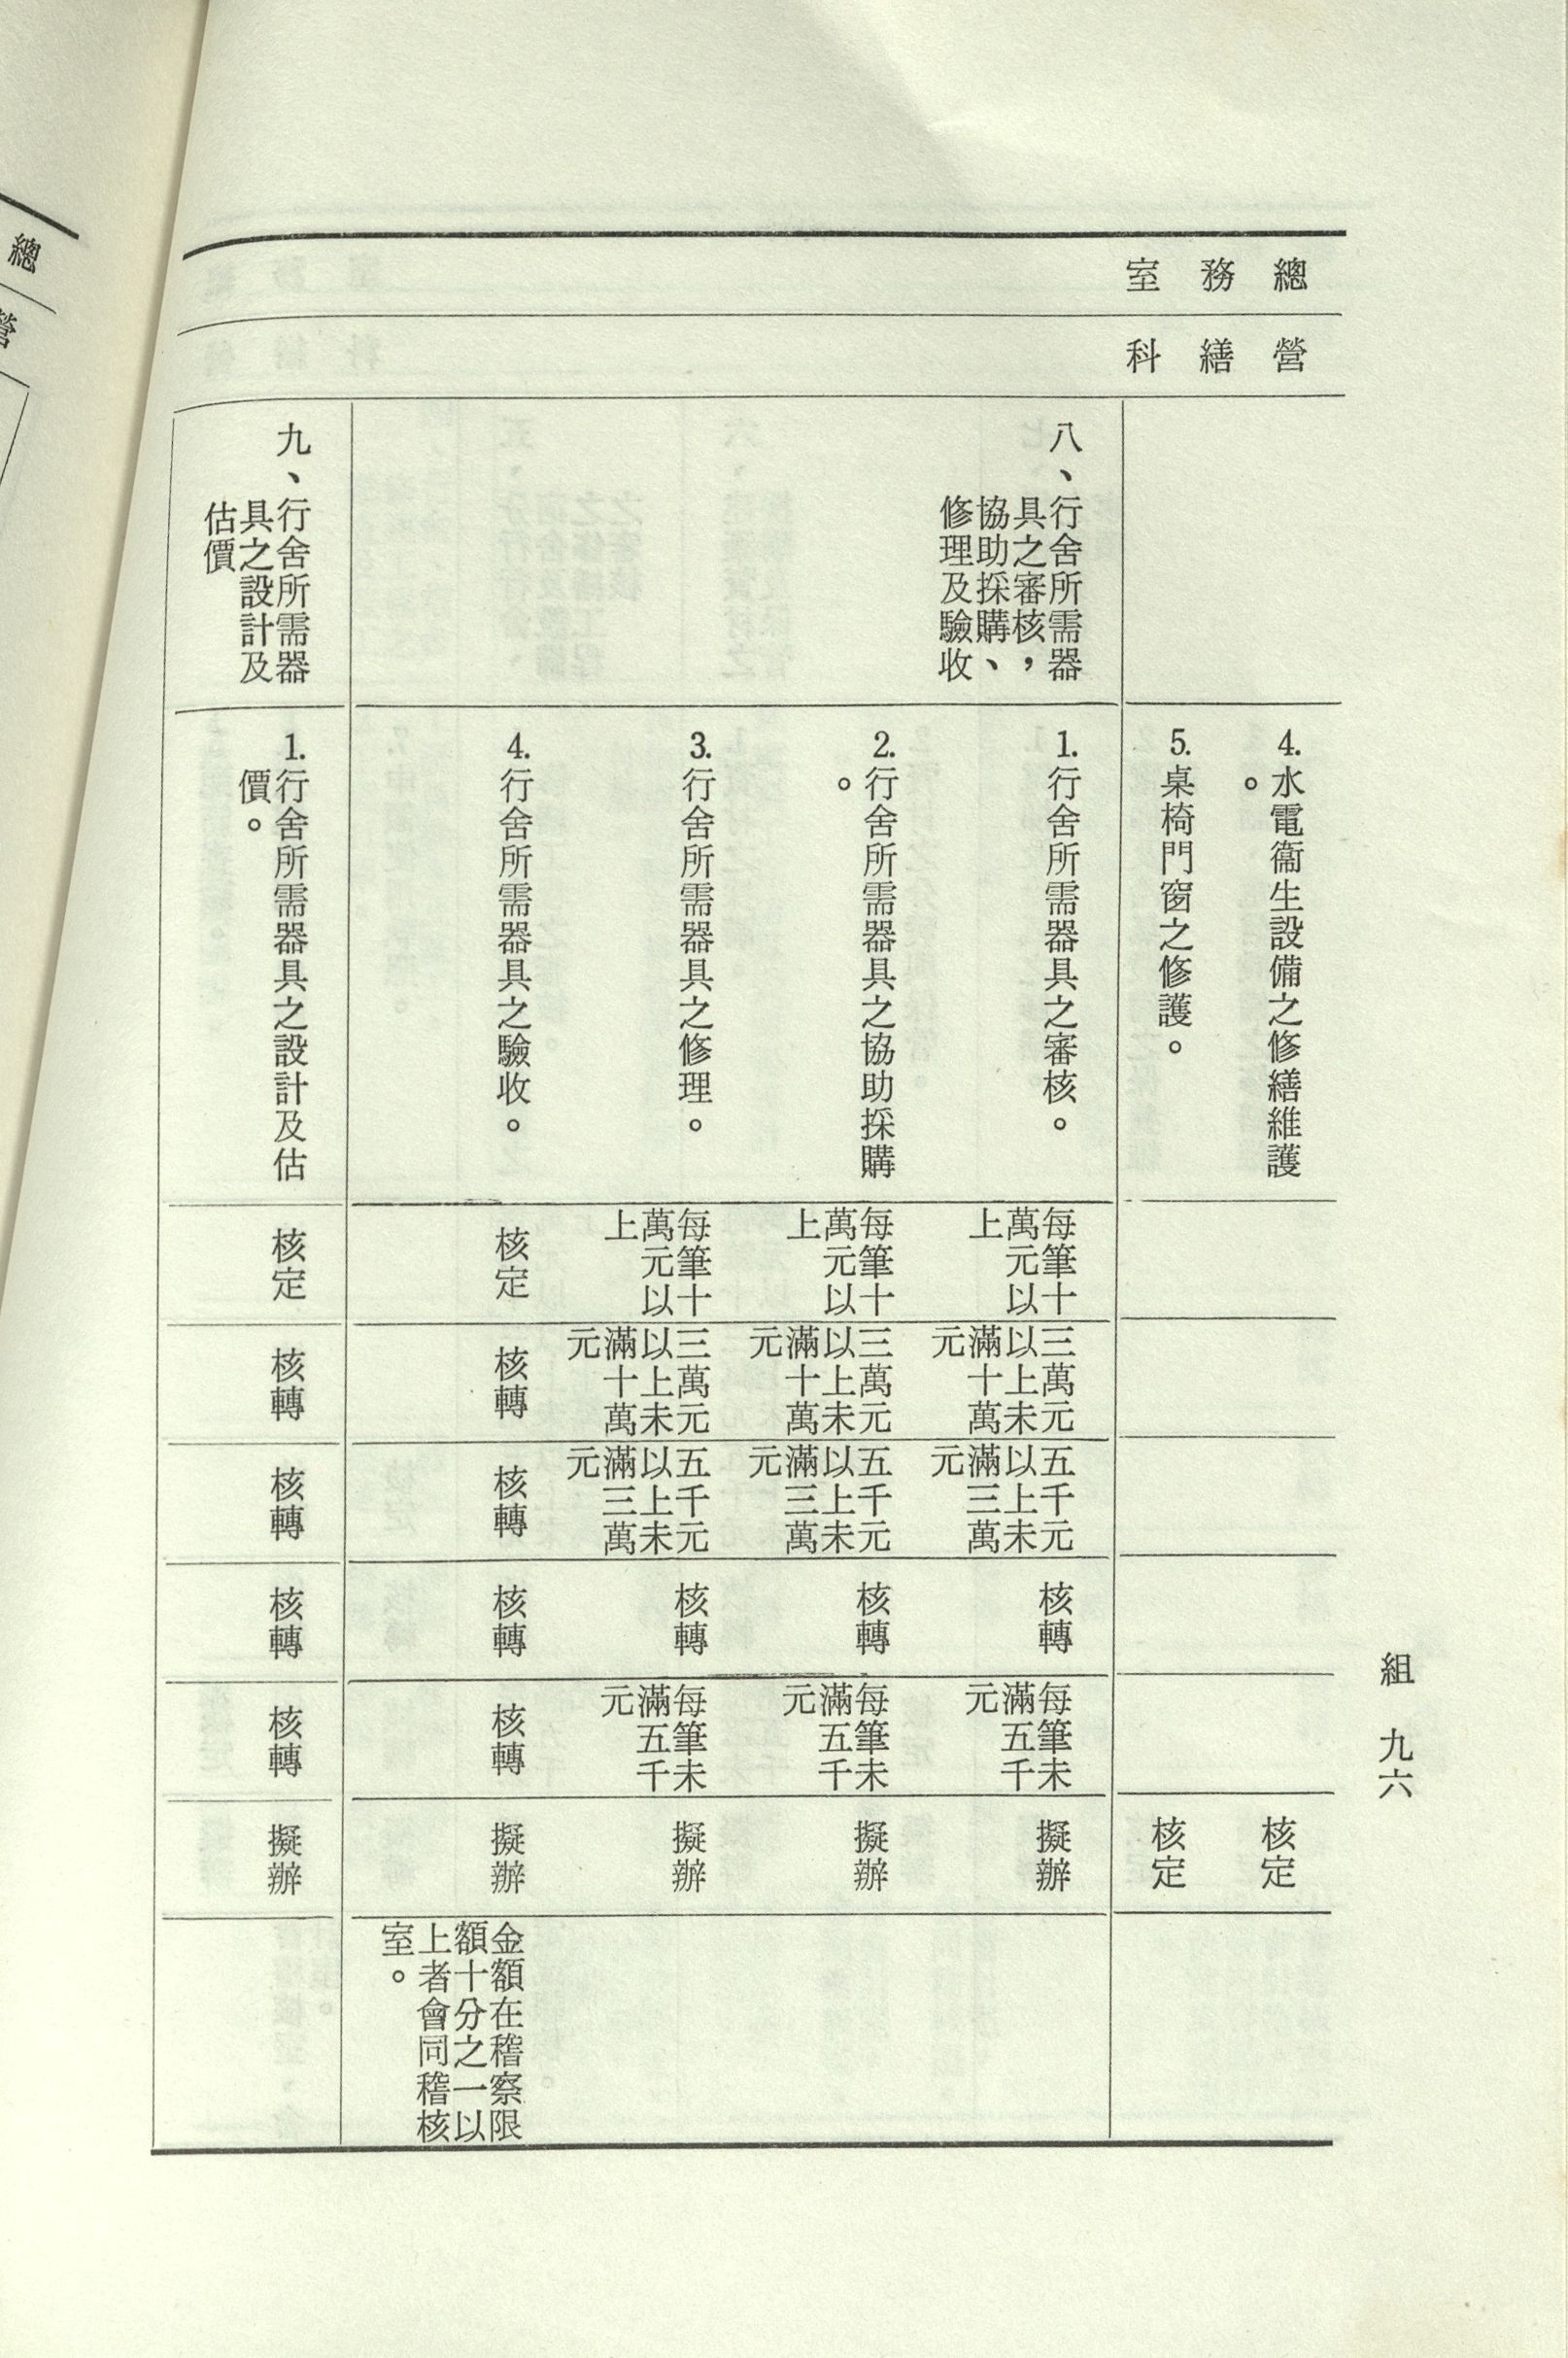 組 九六
總務室
營繕科
4.水電衞生設備之修繕維護
。
核定
5.桌椅門窗之修護。
核定
八、行舍所需器
具之審核，
協助採購、
修理及驗收
1.行舍所需器具之審核。
每筆十
萬元以
上
三萬元
以上未
滿十萬
元
五千元
以上未
滿三萬
元
核轉
每筆未
滿五千
元
擬辦
2.行舍所需器具之協助採購
。
每筆十
萬元以
上
三萬元
以上未
滿十萬
元
五千元
以上未
滿三萬
元
核轉
每筆未
滿五千
元
擬辦
3.行舍所需器具之修理。
每筆十
萬元以
上
三萬元
以上未
滿十萬
元
五千元
以上未
滿三萬
元
核轉
每筆未
滿五千
元
擬辦
4.行舍所需器具之驗收。
核定
核轉
核轉
核轉
核轉
擬辦
金額在稽察限
額十分之一以
上者會同稽核
室。
九、行舍所需器
具之設計及
估價
1.行舍所需器具之設計及估
價。
核定
核轉
核轉
核轉
核轉
擬辦
總
營